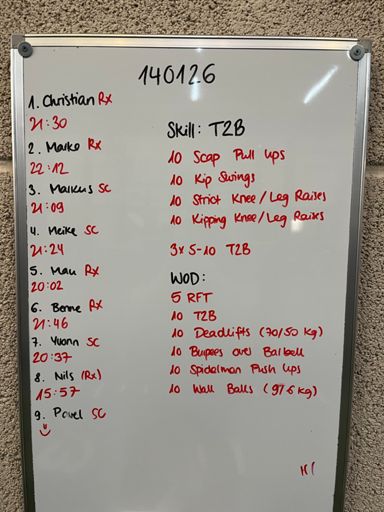 140126
1. Christian Rx
21:30
2. Marko Rx
22:12
3. Markus SC
21:09
4. Meike SC
21:24
5. Max Rx
20:02
6. Benne Rx
21:46
7. Yvonn SC
20:37
8. Nils (Rx)
15:57
9. Pavel SC
Skill: T2B
10 Scap Pull Ups
10 Kip Swings
10 Strict Knee/Leg Raises
10 Kipping Knee/Leg Raises
3x 5-10 T2B
WOD:
5 RFT
10 T2B
10 Deadlifts (70/50 kg)
10 Burpees over Barbell
10 Spiderman Push Ups
10 Wall Balls (9/6 kg)